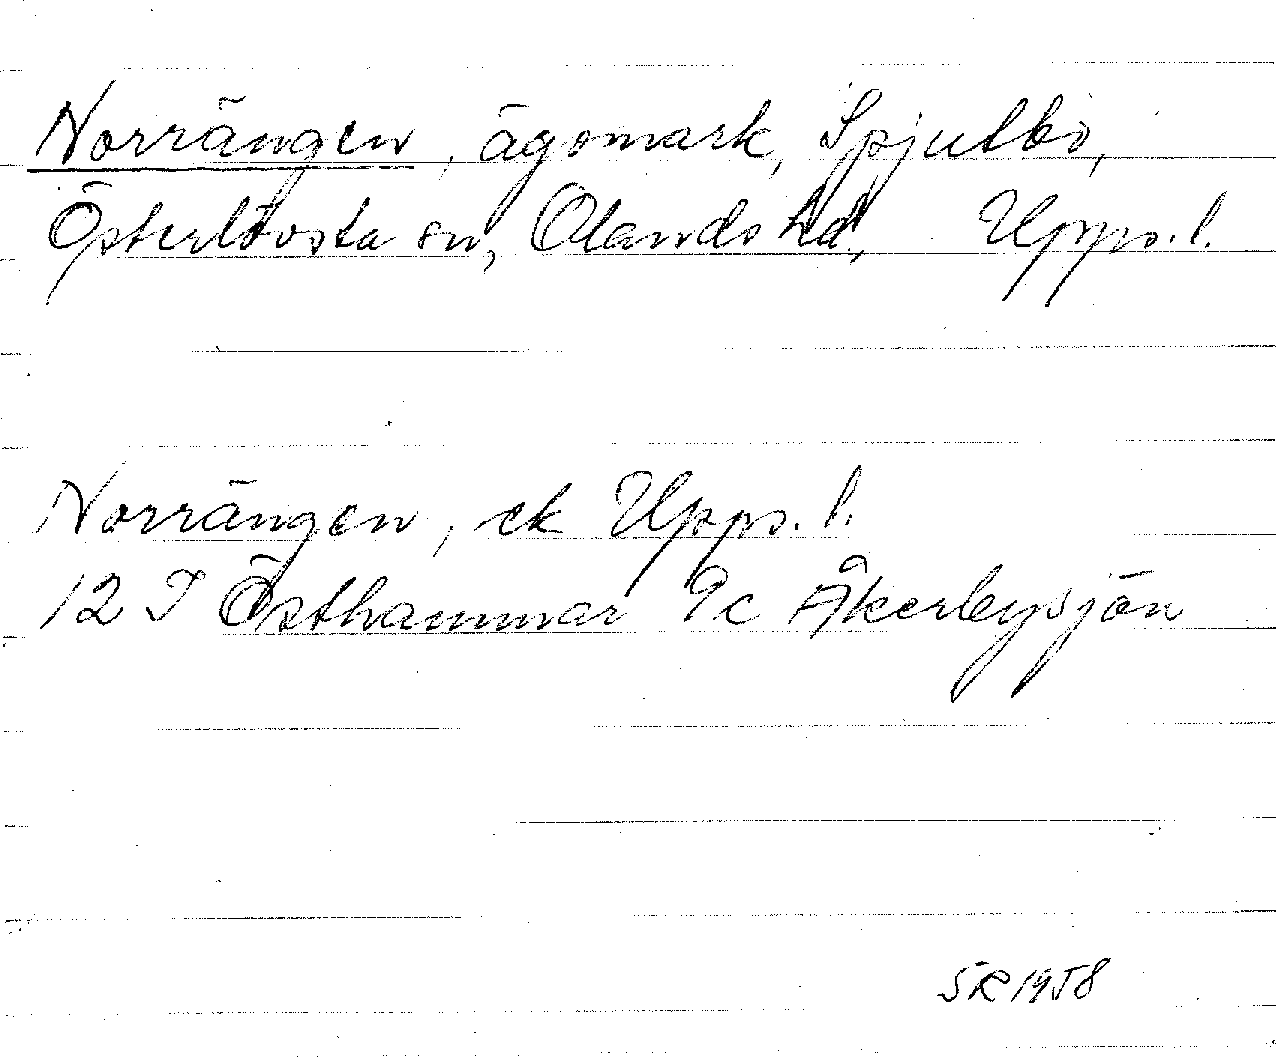 Norrängen, ägomark, Spjutbo,
Österlövsta sn, Olands hd, Upps. l.
Norrängen, ek Upps. l.
12 I Östhammar 9c Åkerbysjön
SR 1958